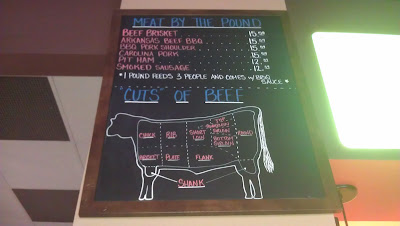 MEAT BY THE POUND
BEEF BRISKET 15.99
ARKANSAS BEEF BBQ 15.99
BBQ PORK SHOULDER 15.99
CAROLINA PORK 15.99
PIT HAM 12.99
SMOKED SAUSAGE 12.99
*1 POUND FEEDS 3 PEOPLE AND COMES W/ BBQ SAUCE*
"CUTS" OF BEEF
CHUCK
RIB
SHORT LOIN
TOP SIRLOIN
BOTTOM SIRLOIN
ROUND
BRISKET
PLATE
FLANK
SHANK